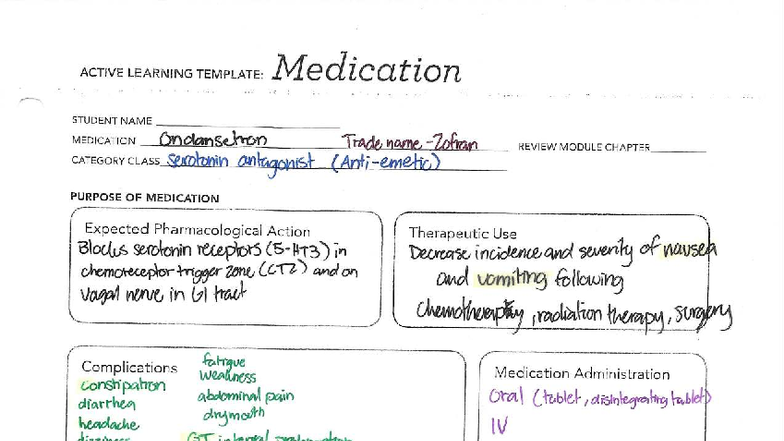 ACTIVE LEARNING TEMPLATE: Medication
STUDENT NAME
MEDICATION Ondansetron Trade name - Zofran REVIEW MODULE CHAPTER
CATEGORY CLASS serotonin antagonist (Anti-emetic)
PURPOSE OF MEDICATION
Expected Pharmacological Action
Blocks serotonin receptors (5-HT3) in
chemoreceptor trigger zone (CTZ) and on
vagal nerve in GI tract
Therapeutic Use
Decrease incidence and severity of nausea
and vomiting following
chemotherapy, radiation therapy, surgery
Complications
constipation
diarrhea
headache
dizziness
fatigue
weakness
abdominal pain
dry mouth
QT interval prolongation
Medication Administration
Oral (tablet, disintegrating tablet)
IV